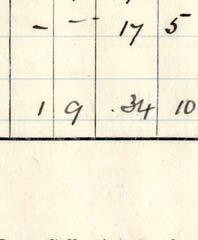 - -- 17 5
1 9 .34 10